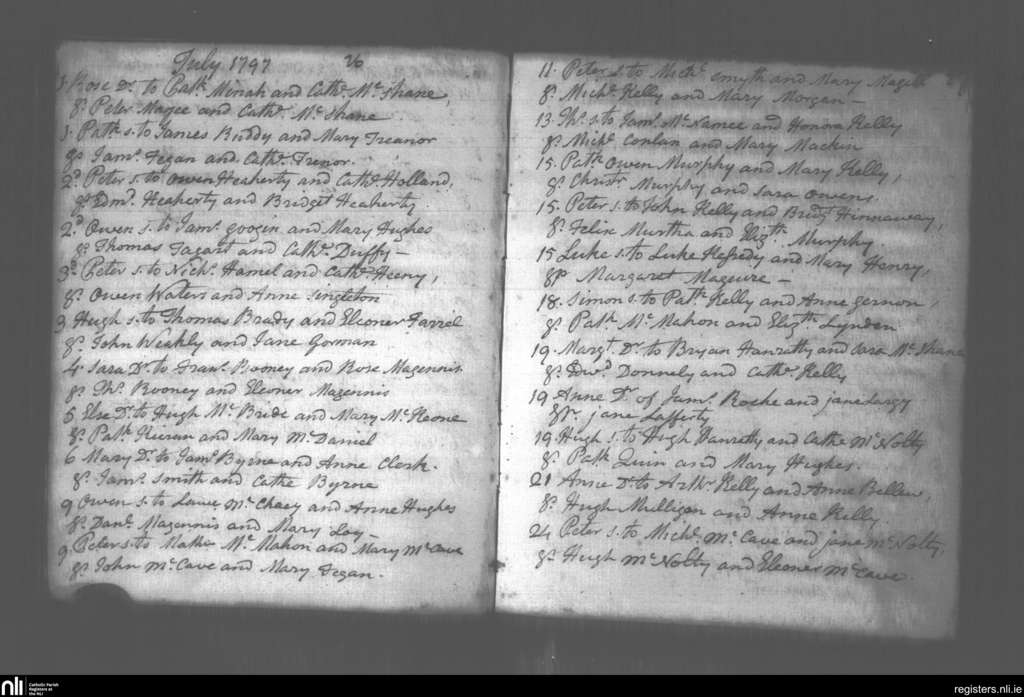 July 1797 26
1. Rose Dr. to Patk. Minah and Cathe. Mc. Shane,
gs. Peter Magee and Cathe. Mc. Shane
1. Patk. s. to James Buddy and Mary Treanor
gs. Jams. Fegan and Cathe. Trenor.
2d. Peter s. to Owen Heaherty and Cathe. Holland,
gs. Edmd. Heaherty and Bridget Heaherty.
2d. Owen s. to Jams. googin and Mary Hughes
gs. Thomas Tagart and Cathe. Duffy —
3d. Peter s. to Nichs. Hamel and Cathe. Heeny,
gs. Owen Waters and Anne Singleton
3 Hugh s. to Thomas Brady and Eleoner Farrel
gs. John Weakly and Jane Gorman
4. Sara Dr. to Frans. Rooney and Rose Magennis
gs. Ths. Rooney and Eleoner Magennis
5 Else Dr. to Hugh Mc. Bride and Mary Mc. Keone
gs. Patk. Kieran and Mary Mc. Daniel
6 Mary Dr. to Jams. Byrne and Anne Clerk.
gs. Jams. Smith and Cathe Byrne
9 Owen s. to Lawe. Mc. Chaey and Anne Hughes
gs. Danl. Magennis and Mary Loy —
9 Peter s. to Mathw Mc. Mahon and Mary Mc Cave
gs. John Mc. Cave and Mary Fegan.
11. Peter s. to Michl. Smyth and Mary Magill
gs. Michl. Kelly and Mary Morgan —
13 Ths. s. to Jams. Mc. Namee and Honora Kelly
gs. Michl. Conlan and Mary Mackin
15. Patk. Owen Murphy and Mary Kelly,
gs. Christr. Murphy and Sara Owens
15. Peter s. to John Kelly and Bridgt. Hinnaway,
gs. Felix Murtha and Elizth. Murphy
15 Luke s. to Luke and Mary Henry,
gs. Margaret Maguire —
18. Simon s. to Patk. Kelly and Anne gernon,
gs. Patk. Mc. Mahon and Elizth. Lynden
19. Margt. Dr. to Bryan Hanratty and Sara Mc. Shane
gs. Edwd. Donnely and Cathe. Kelly
19 Anne Dr. of Jams. Roche and jane Largy
gs. jane Lafferty
19. Hugh s. to Hugh Hanratty and Cathe Mc. Nolty
gs. Patk Quin and Mary Hughes.
21 Anne Dr. to Arthr. Kelly and Anne Bellew,
gs. Hugh Mulligan and Anne Kelly.
24 Peter s. to Michl. Mc. Cave and jane Mc. Nolty,
gs. Hugh Mc. Nolty and Eleoner Mc Cave.
nli
Catholic Parish
Registers at
the NLI
registers.nli.ie